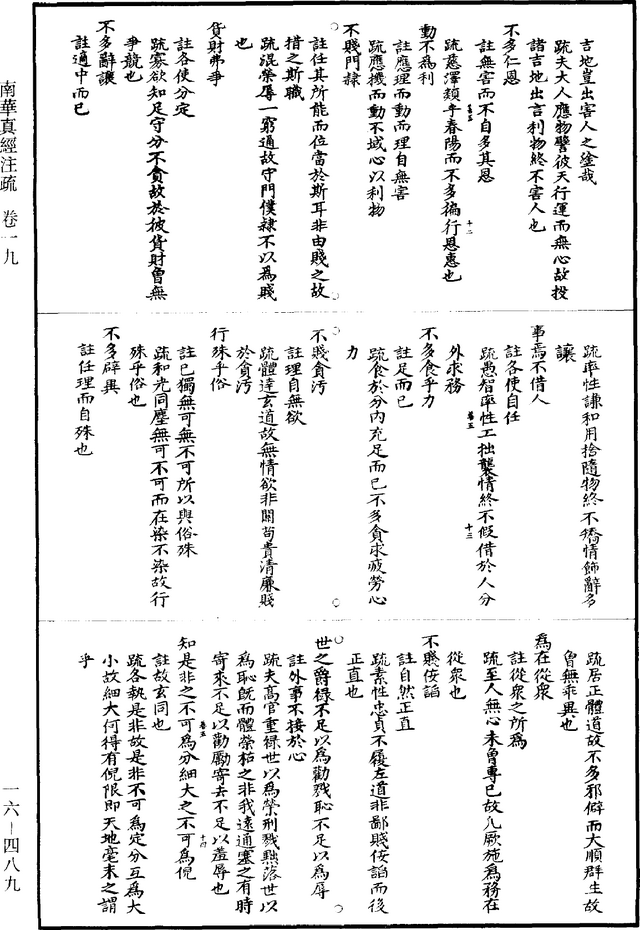 南華真經注疏　卷一九
吉地豈出害人之塗哉
疏夫大人應物譬彼天行運而無心故投
諸吉地出言利物終不害人也
不多仁恩
註無害而不自多其恩
疏慈澤類乎春陽而不多徧行恩惠也
動不為利
註應理而動而理自無害
疏應機而動不域心以利物
不賤門隸
註任其所能而位當於斯耳非由賤之故
措之斯職
疏混榮辱一窮通故守門僕隸不以為賤
也
貨財弗爭
註各使分定
疏寡欲知足守分不貪故於彼貨財曾無
爭競也
不多辭讓
註適中而已
疏率性謙和用捨隨物終不矯情飾辭多
讓
事焉不借人
註各使自任
疏愚智率性工拙襲情終不假借於人分
外求務
不多食乎力
註足而已
疏食於分內充足而已不多貪求疲勞心
力
不賤貪污
註理自無欲
疏體達玄道故無情欲非關苟貴清廉賤
於貪污
行殊乎俗
註已獨無可無不可所以與俗殊
疏和光同塵無可不可而在染不染故行
殊乎俗也
不多辟異
註任理而自殊也
疏居正體道故不多邪僻而大順群生故
曾無乖異也
為在從衆
註從衆之所為
疏至人無心未曾專已故凡厥施為務在
從衆也
不賤佞諂
註自然正直
疏素性忠貞不履左道非鄙賤佞諂而後
正直也
世之爵祿不足以為勸戮恥不足以為辱
註外事不接於心
疏夫高官重祿世以為榮刑戮黜落世以
為恥既而體榮枯之非我達通塞之有時
寄來不足以勸勵寄去不足以羞辱也
知是非之不可為分細大之不可為倪
註故玄同也
疏各執是非故是非不可為定分互為大
小故細大何得有倪限即天地毫末之謂
乎
卷五
十二
卷五
十三
卷五
十四
一六－四八九